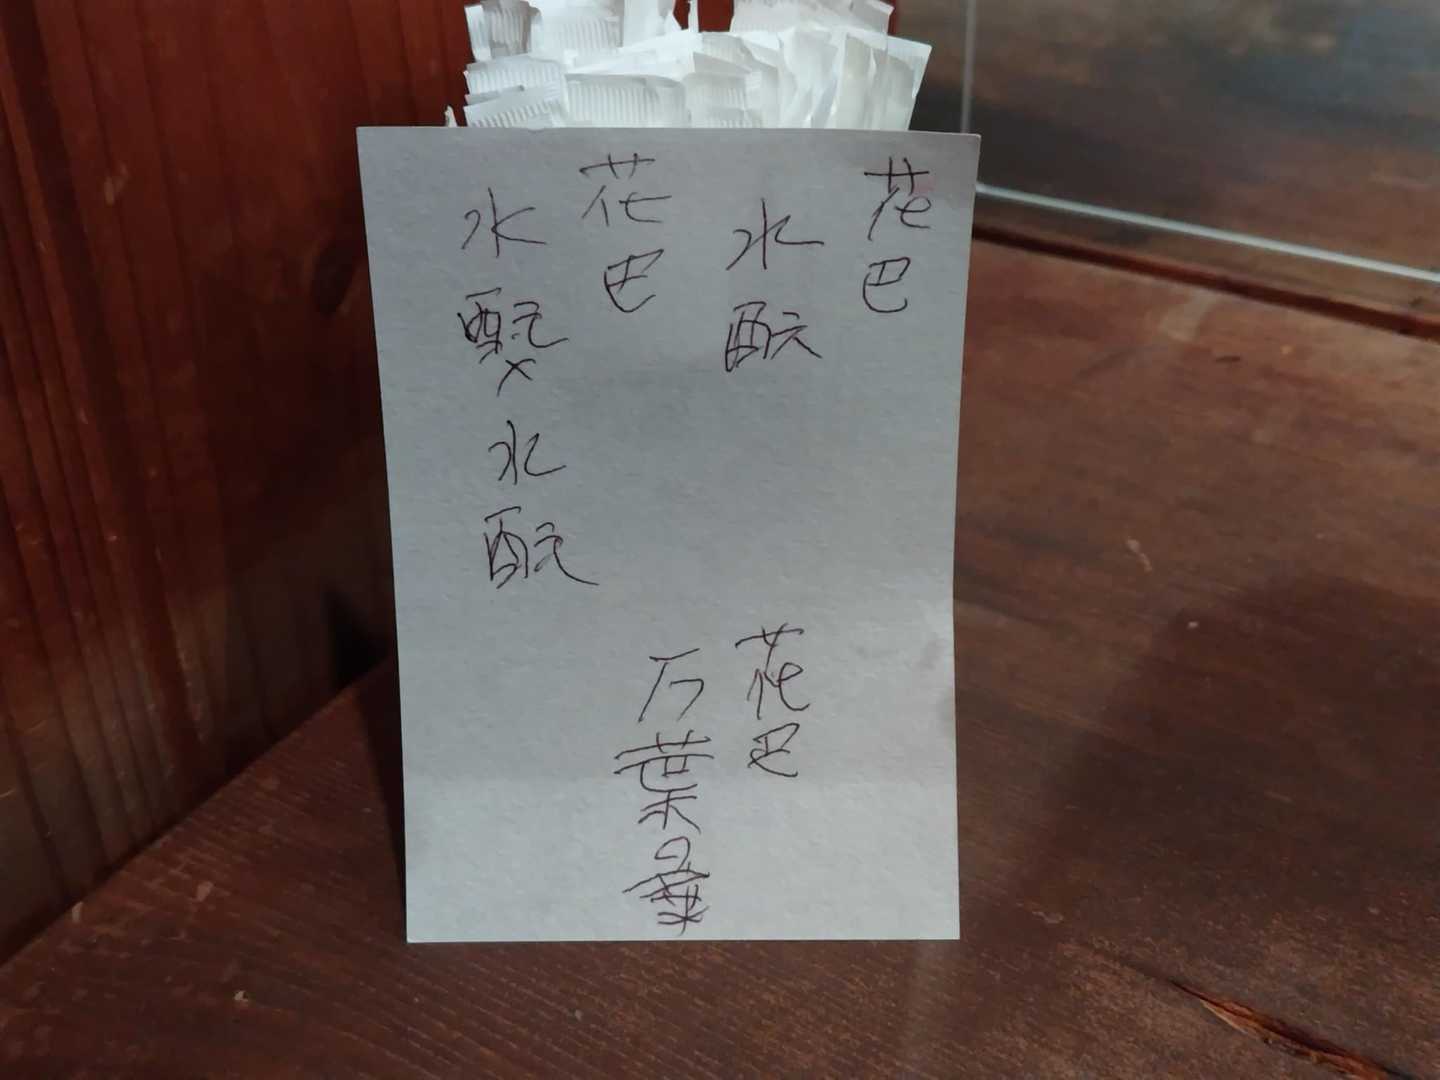 花巴
水酛
花巴
水酛×水酛
花巴
万葉